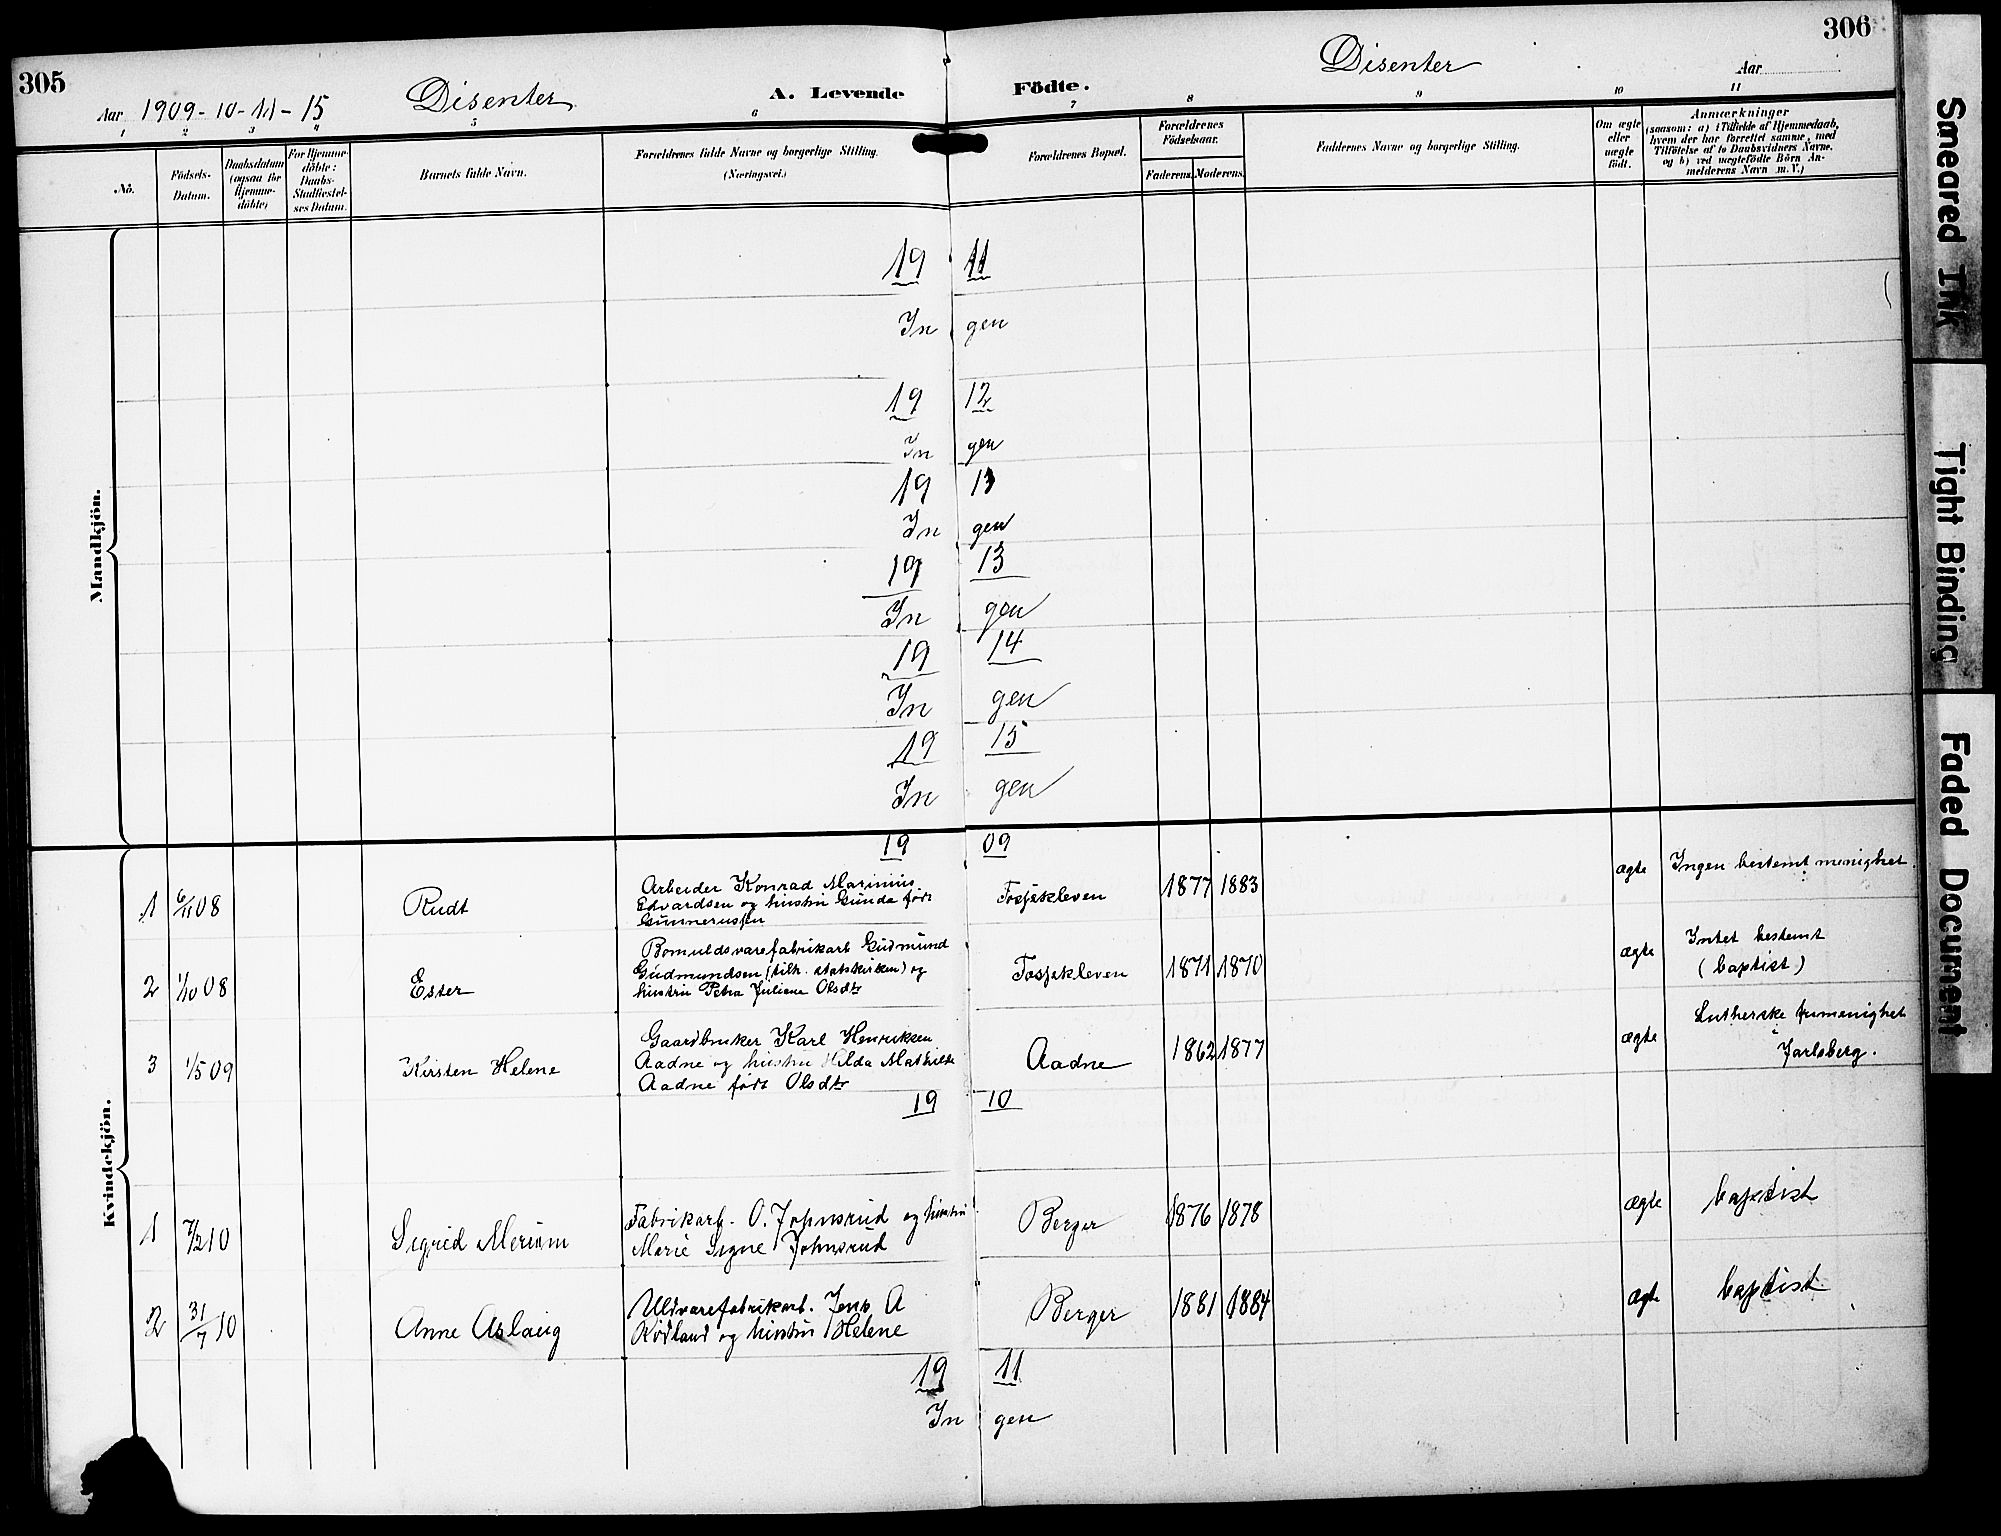 305
Aar 1909-10-11-15
Disenter
A. Levende
Födte.
Disenter
Aar
306
1 2 3 4 5 6 7 8 9 10 11
No.
Födsels-
Datum.
Daabsdatum
(ogsaa for
Hjemme-
döbte)
For Hjemme-
döbte:
Daabs-
Stadfæstel-
ses Datum.
Barnets fulde Navn.
Forældrenes fulde Navne og borgerlige Stilling.
(Næringsvei.)
Forældrenes Bopæl.
Forældrenes
Födselsaar.
Faderens. Moderens.
Faddernes Navne og borgerlige Stilling.
Om ægte
eller
uægte
födt.
Anmærkninger
(saasom: a) i Tilfælde af Hjemmedaab,
hvem der har forrettet samme, med
Tilföielse af to Daabsvidners Navne.
og b) ved uægtefödte Börn An-
melderens Navn m. V.)
Mandkjön.
19 11
In gen
19 12
In gen
19 13
In gen
19 13
In gen
19 14
In gen
19 15
In gen
Kvindekjön.
19 09
1 6/11 08 Rudt
Arbeider Konrad Marinius
Edvardsen og hustru Gunda född
Gunnerussen
Fosjekleven 1877 1883 ægte Ingen bestemt menighet
2 1/10 08 Ester
Bomuldsvarefabrikarb Gudmund
Gudmundsen (tilh. statskirken) og
hustru Petra Juliane Olsdtr
Fosjekleven 1871 1870 ægte Intet bestemt
(baptist)
3 1/5 09 Kirsten Helene
Gaardbruker Karl Henriksen
Aadne og hustru Hilda Mathilde
Aadne født Olsdtr
Aadne 1862 1877 ægte Lutherske frimenighet
Jarlsberg.
19 10
1 7/2 10 Sigrid Meriam
Fabrikarb. O. Johnsrud og hustru
Marie Signe Johnsrud
Berger 1876 1878 ægte baptist
2 31/7 10 Anne Aslaug
Uldvarefabrikarb. Jens A
Rödland og hustru Helene
Berger 1881 1884 ægte baptist
19 11
In gen
Smeared Ink
Tight Binding
Faded Document